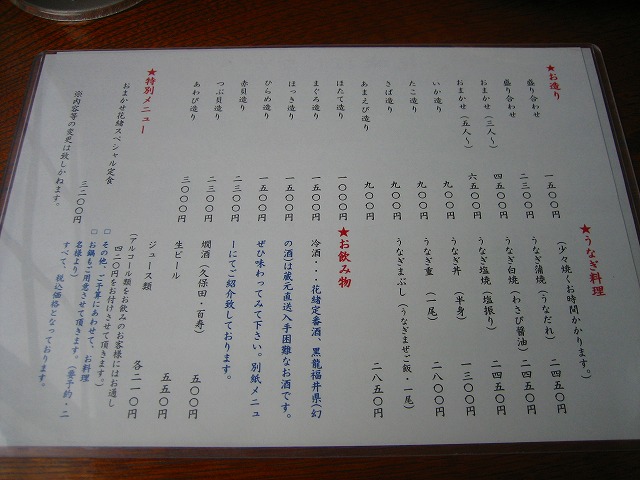 ★お造り
盛り合わせ 一五〇〇円
盛り合わせ 二三〇〇円
おまかせ(三人〜) 四五〇〇円
おまかせ(五人〜) 六五〇〇円
いか造り 九〇〇円
たこ造り 九〇〇円
さば造り 九〇〇円
あまえび造り 九〇〇円
ほたて造り 一〇〇〇円
まぐろ造り 一五〇〇円
ほっき造り 一五〇〇円
ひらめ造り 一五〇〇円
赤貝造り 二三〇〇円
つぶ貝造り 二三〇〇円
あわび造り 三〇〇〇円
★特別メニュー
おまかせ花緒スペシャル定食 三二〇〇円
※内容等の変更は致しかねます。
★うなぎ料理
(少々焼くお時間かかります。)
うなぎ蒲焼(うなだれ) 二四五〇円
うなぎ白焼(わさび醤油) 二四五〇円
うなぎ塩焼(塩振り) 二四五〇円
うなぎ丼 (半身) 一三〇〇円
うなぎ重 (一尾) 二八〇〇円
うなぎまぶし(うなぎまぜご飯・一尾) 二八五〇円
★お飲み物
冷酒・・・花緒定番酒、黒龍福井県(幻
の酒)は蔵元直送入手困難なお酒です。
ぜひ味わってみて下さい。別紙メニュ
ーにてご紹介致しております。
燗酒(久保田・百寿) 五〇〇円
生ビール 五五〇円
ジュース類 各二一〇円
(アルコール類をお飲みのお客様にはお通し
四二〇円をお付けさせて頂きます。)
□その他、ご予算にあわせて、お料理
□お鍋もご用意させて頂きます。(要予約・二
名様より)
すべて、税込価格となっております。